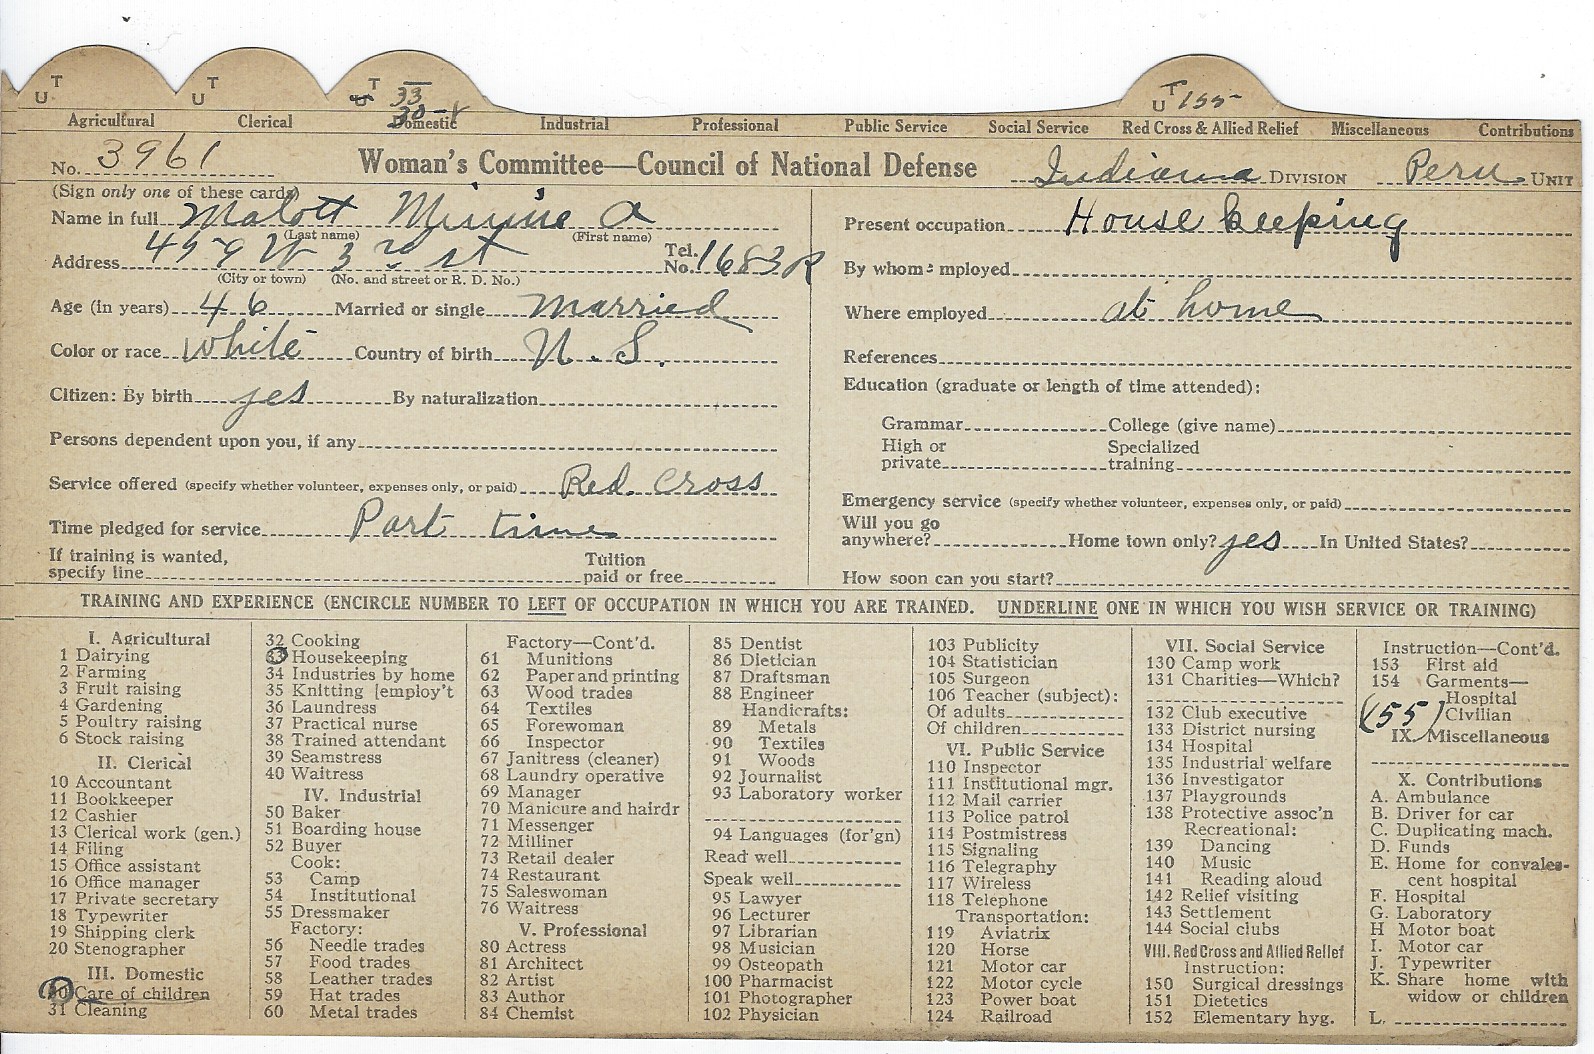 T U T U T U 33 30 T U 155
Agricultural Clerical Domestic Industrial Professional Public Service Social Service Red Cross & Allied Relief Miscellaneous Contributions
No. 3961 Woman's Committee—Council of National Defense Indiana DIVISION Peru UNIT
(Sign only one of these cards)
Name in full Malott Minnie A
(Last name) (First name)
Address 459 W 3rd st Tel. No. 1683 R
(City or town) (No. and street or R. D. No.)
Age (in years) 46 Married or single married
Color or race white Country of birth U. S.
Citizen: By birth yes By naturalization
Persons dependent upon you, if any
Service offered (specify whether volunteer, expenses only, or paid) Red Cross
Time pledged for service Part time
If training is wanted,
specify line Tuition paid or free
Present occupation House keeping
By whom mployed
Where employed at home
References
Education (graduate or length of time attended):
Grammar College (give name)
High or private Specialized training
Emergency service (specify whether volunteer, expenses only, or paid)
Will you go
anywhere? Home town only? yes In United States?
How soon can you start?
TRAINING AND EXPERIENCE (ENCIRCLE NUMBER TO LEFT OF OCCUPATION IN WHICH YOU ARE TRAINED. UNDERLINE ONE IN WHICH YOU WISH SERVICE OR TRAINING)
I. Agricultural
1 Dairying
2 Farming
3 Fruit raising
4 Gardening
5 Poultry raising
6 Stock raising
II. Clerical
10 Accountant
11 Bookkeeper
12 Cashier
13 Clerical work (gen.)
14 Filing
15 Office assistant
16 Office manager
17 Private secretary
18 Typewriter
19 Shipping clerk
20 Stenographer
III. Domestic
30 Care of children
31 Cleaning
32 Cooking
33 Housekeeping
34 Industries by home
35 Knitting [employ't
36 Laundress
37 Practical nurse
38 Trained attendant
39 Seamstress
40 Waitress
IV. Industrial
50 Baker
51 Boarding house
52 Buyer
Cook:
53 Camp
54 Institutional
55 Dressmaker
Factory:
56 Needle trades
57 Food trades
58 Leather trades
59 Hat trades
60 Metal trades
Factory—Cont'd.
61 Munitions
62 Paper and printing
63 Wood trades
64 Textiles
65 Forewoman
66 Inspector
67 Janitress (cleaner)
68 Laundry operative
69 Manager
70 Manicure and hairdr
71 Messenger
72 Milliner
73 Retail dealer
74 Restaurant
75 Saleswoman
76 Waitress
V. Professional
80 Actress
81 Architect
82 Artist
83 Author
84 Chemist
85 Dentist
86 Dietician
87 Draftsman
88 Engineer
Handicrafts:
89 Metals
90 Textiles
91 Woods
92 Journalist
93 Laboratory worker
94 Languages (for'gn)
Read well
Speak well
95 Lawyer
96 Lecturer
97 Librarian
98 Musician
99 Osteopath
100 Pharmacist
101 Photographer
102 Physician
103 Publicity
104 Statistician
105 Surgeon
106 Teacher (subject):
Of adults
Of children
VI. Public Service
110 Inspector
111 Institutional mgr.
112 Mail carrier
113 Police patrol
114 Postmistress
115 Signaling
116 Telegraphy
117 Wireless
118 Telephone
Transportation:
119 Aviatrix
120 Horse
121 Motor car
122 Motor cycle
123 Power boat
124 Railroad
VII. Social Service
130 Camp work
131 Charities—Which?
132 Club executive
133 District nursing
134 Hospital
135 Industrial welfare
136 Investigator
137 Playgrounds
138 Protective assoc'n
Recreational:
139 Dancing
140 Music
141 Reading aloud
142 Relief visiting
143 Settlement
144 Social clubs
VIII. Red Cross and Allied Relief
Instruction:
150 Surgical dressings
151 Dietetics
152 Elementary hyg.
Instruction—Cont'd.
153 First aid
154 Garments—
Hospital
(155) Civilian
IX. Miscellaneous
X. Contributions
A. Ambulance
B. Driver for car
C. Duplicating mach.
D. Funds
E. Home for convales-
cent hospital
F. Hospital
G. Laboratory
H Motor boat
I. Motor car
J. Typewriter
K. Share home with
widow or children
L.